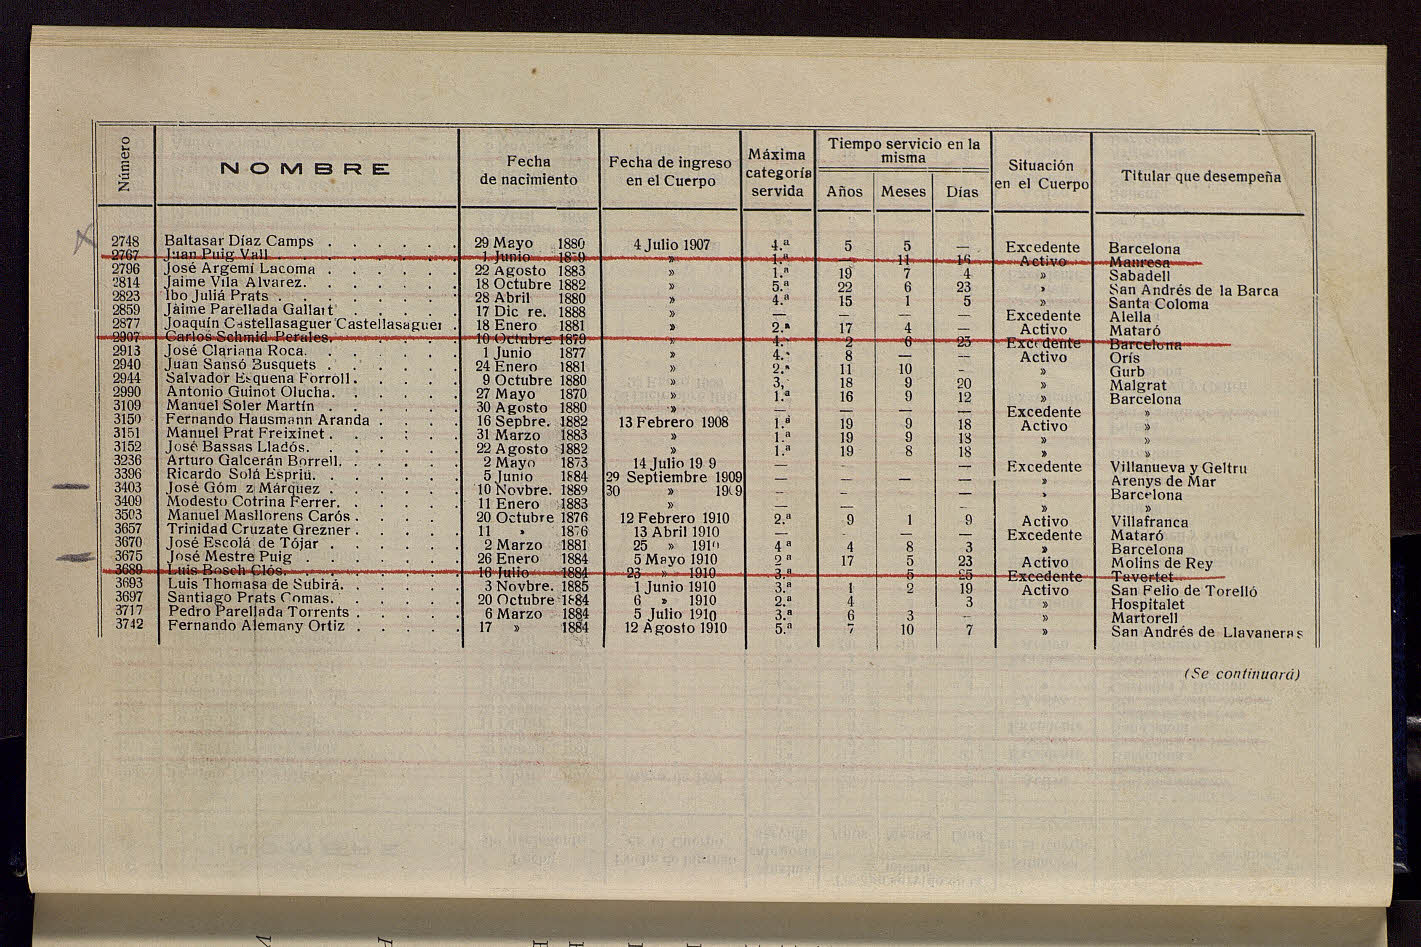 Número
NOMBRE
Fecha
de nacimiento
Fecha de ingreso
en el Cuerpo
Máxima
categoría
servida
Tiempo servicio en la
misma
Años Meses Días
Situación
en el Cuerpo
Titular que desempeña
2748 Baltasar Díaz Camps . . . . . . 29 Mayo 1880 4 Julio 1907 4.ª 5 5 — Excedente Barcelona
2767 Juan Puig Vall . . . . . . 1 Junio 1879 » 1.ª — 11 16 Activo Manresa
2796 José Argemí Lacoma . . . . . . 22 Agosto 1883 » 1.ª 19 7 4 » Sabadell
2814 Jaime Vila Alvarez. . . . . . 18 Octubre 1882 » 5.ª 22 6 23 » San Andrés de la Barca
2823 Ibo Juliá Prats . . . . . . 28 Abril 1880 » 4.ª 15 1 5 » Santa Coloma
2859 Jaime Parellada Gallart . . . . . 17 Dic re. 1888 » — — — — Excedente Alella
2877 Joaquín Castellasaguer Castellasaguer . 18 Enero 1881 » 2.ª 17 4 — Activo Mataró
2907 Carlos Schmid Perales. . . . . . 10 Octubre 1879 » 4. 2 6 25 Excedente Barcelona
2913 José Clariana Roca. . . . . . 1 Junio 1877 » 4. 8 — — Activo Orís
2940 Juan Sansó Busquets . . . . . . 24 Enero 1881 » 2.ª 11 10 - » Gurb
2944 Salvador Esquena Forroll . . . . . 9 Octubre 1880 » 3, 18 9 20 » Malgrat
2990 Antonio Guinot Olucha. . . . . . 27 Mayo 1870 » 1.ª 16 9 12 » Barcelona
3109 Manuel Soler Martín . . . . . . 30 Agosto 1880 » — — — — Excedente »
3150 Fernando Hausmann Aranda . . . . 16 Sepbre. 1882 13 Febrero 1908 1.ª 19 9 18 Activo »
3151 Manuel Prat Freixinet . . . . . . 31 Marzo 1883 » 1.ª 19 9 18 » »
3152 José Bassas Lladós. . . . . . 22 Agosto 1882 » 1.ª 19 8 18 » »
3236 Arturo Galcerán Borrell. . . . . . 2 Mayo 1873 14 Julio 19 9 — — — — Excedente Villanueva y Geltru
3396 Ricardo Solá Espriu. . . . . . 5 Junio 1884 29 Septiembre 1909 — — — — » Arenys de Mar
3403 José Góm z Márquez . . . . . . 10 Novbre. 1889 30 » 1909 — - - — » Barcelona
3409 Modesto Cotrina Ferrer. . . . . . 11 Enero 1883 » — — — — » »
3503 Manuel Masllorens Carós . . . . . 20 Octubre 1876 12 Febrero 1910 2.ª 9 1 9 Activo Villafranca
3657 Trinidad Cruzate Grezner . . . . . 11 » 1876 13 Abril 1910 — - — — Excedente Mataró
3670 José Escolá de Tójar . . . . . . 2 Marzo 1881 25 » 1910 4ª 4 8 3 » Barcelona
3675 José Mestre Puig . . . . . . 26 Enero 1884 5 Mayo 1910 2ª 17 5 23 Activo Molins de Rey
3689 Luis Bosch Clós. . . . . . 16 Julio 1884 23 » 1910 3.ª 5 25 Excedente Tavertet
3693 Luis Thomasa de Subirá. . . . . . 3 Novbre. 1885 1 Junio 1910 3.ª 1 2 19 Activo San Felio de Torelló
3697 Santiago Prats Comas. . . . . . 20 Octubre 1884 6 » 1910 2.ª 4 3 » Hospitalet
3717 Pedro Parellada Torrents . . . . . 6 Marzo 1884 5 Julio 1910 3.ª 6 3 - » Martorell
3742 Fernando Alemany Ortiz . . . . . 17 » 1884 12 Agosto 1910 5.ª 7 10 7 » San Andrés de Llavaneras
(Se continuará)